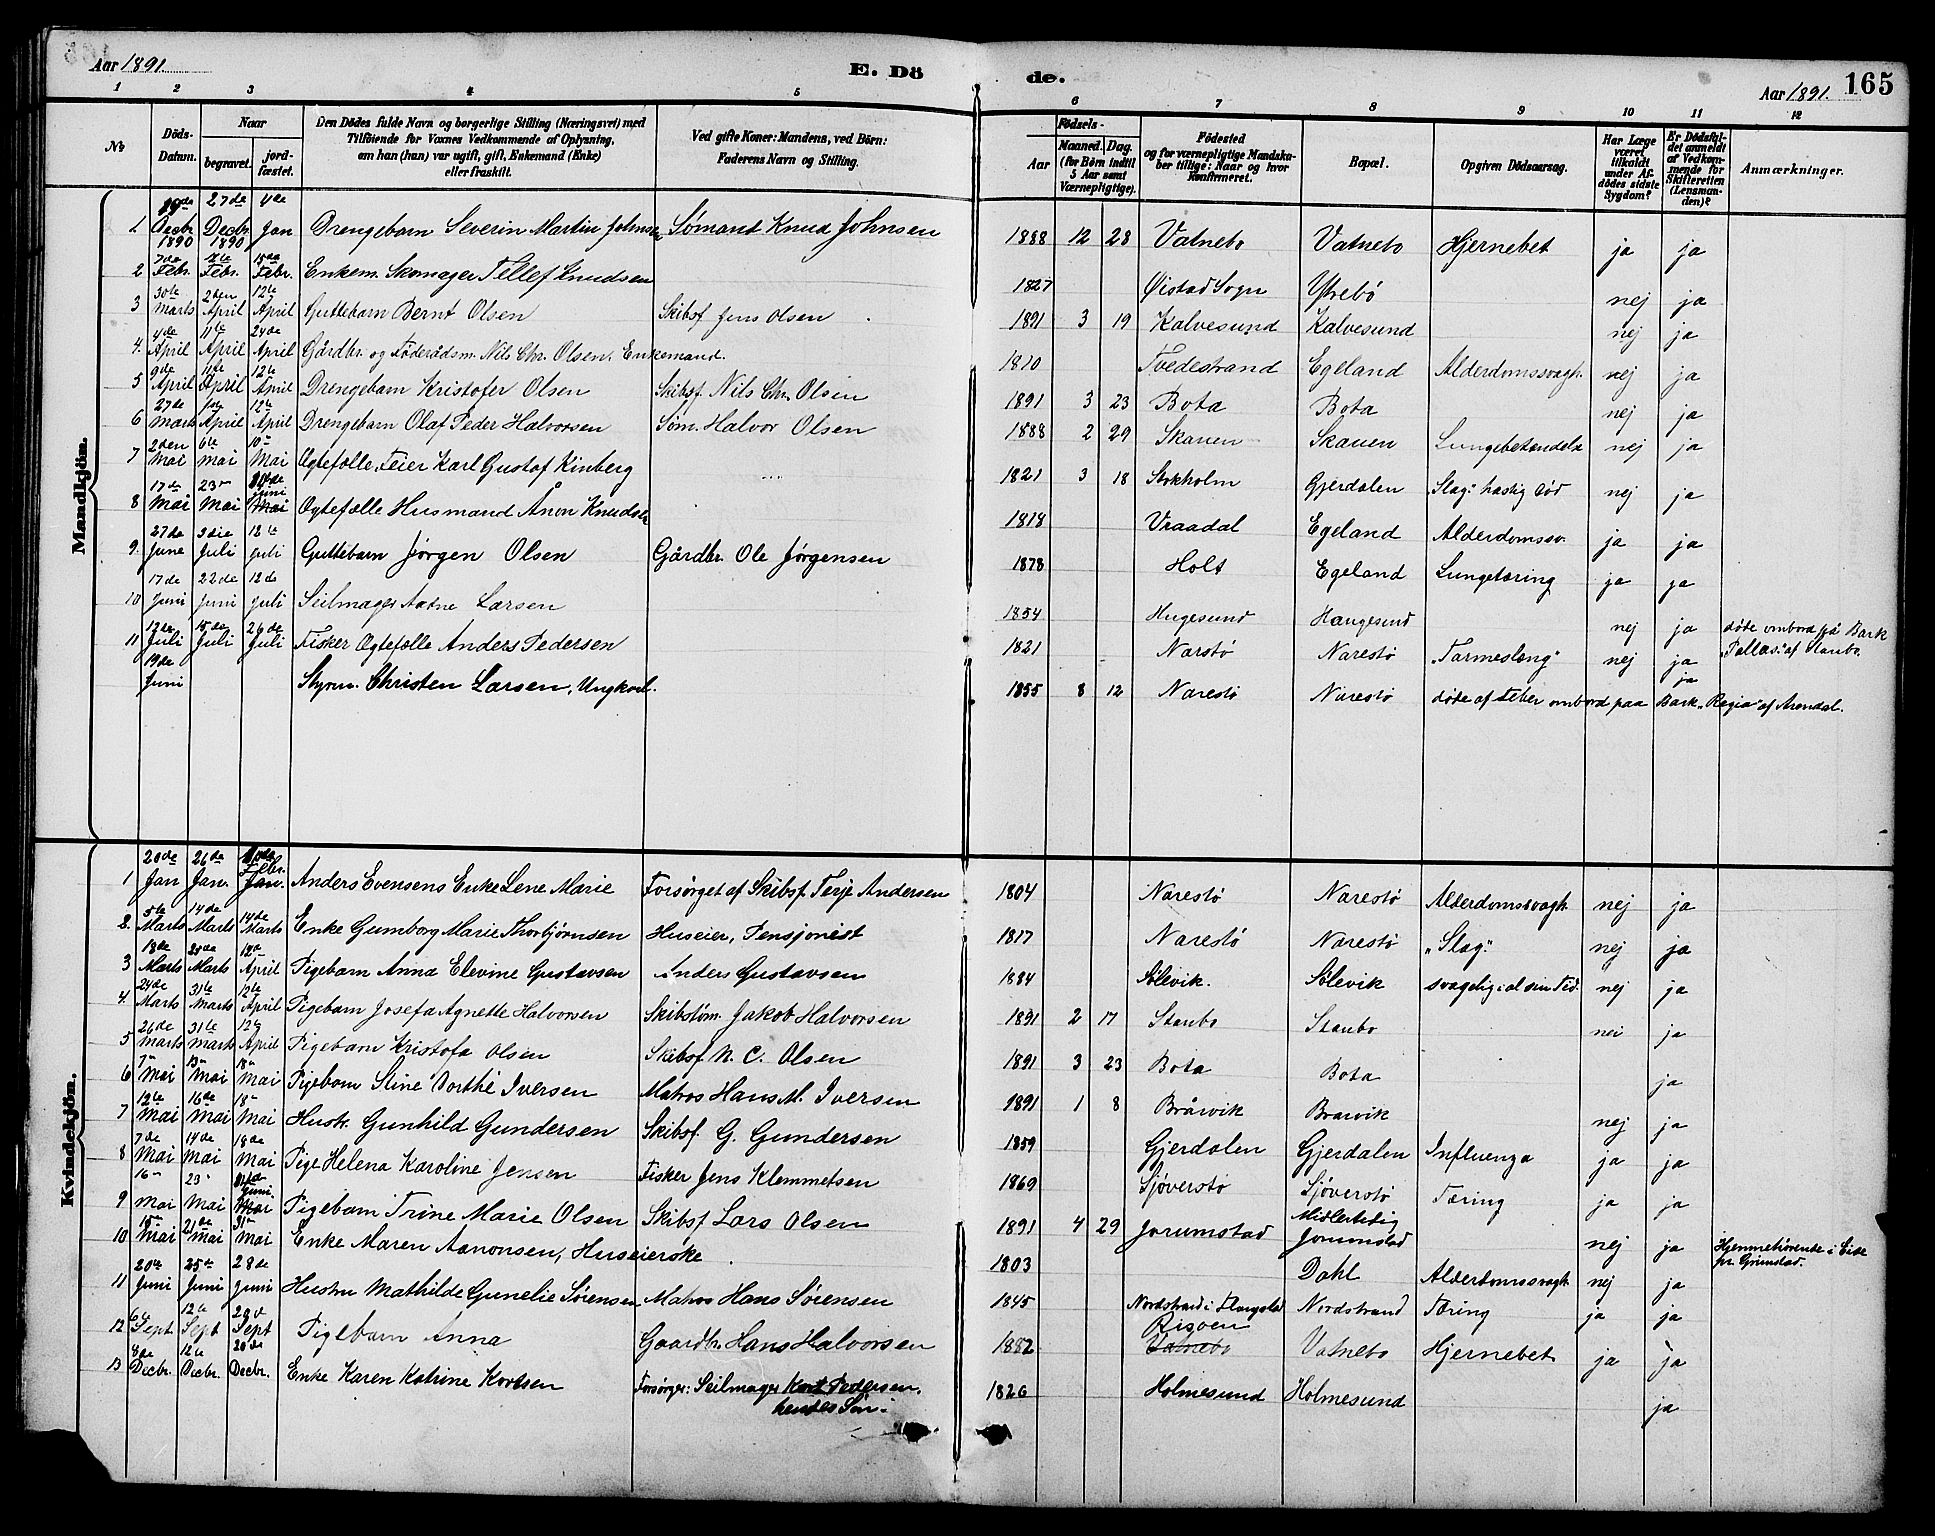 Aar 1891.
E. Dö
de.
Aar 1891.
165
1 2 3 4 5 6 7 8 9 10 11 12
No
Döds-Datum.
Naar
begravet.
jordfæstet.
Den Dödes fulde Navn og borgerlige Stilling (Næringsvei) med
Tilföiende for Voxnes Vedkommende af Oplysning,
om han (hun) var ugift, gift, Enkemand (Enke)
eller fraskilt.
Ved gifte Koner: Mandens, ved Börn:
Faderens Navn og Stilling.
Födsels-
Aar
Maaned. Dag.
(for Börn indtil
5 Aar samt
Værnepligtige).
Födested
og for værnepligtige Mandskaber tillige: Naar og hvor
Konfirmeret.
Bopæl.
Opgiven Dödsaarsag.
Har Læge
været
tilkaldt
under Afdödes sidste
Sygdom?
Er Dödsfaldet anmeldt
af Vedkommende for
Skifteretten
(Lensmanden)?
Anmærkninger.
Mandkjön.
1 19de Decbr. 1890 27de Decbr. 1890 4de Jan Drengebarn Severin Martin Johnsen Sømand Knud Johnsen 1888 12 28 Vatnebo Vatnebo Hjernebet ja ja
2 7de Febr. Febr. 15de Febr. Enkem. Skomager Tellef Knudsen 1827 Øistad Sogn Ytrebö nej ja
3 30te Marts 2den April 12te April Guttebarn Bernt Olsen Skibsf. Jens Olsen 1891 3 19 Kalvesund Kalvesund nej ja
4. 4de April 11te April 24de April Gårdbr. og Föderådsm. Nils Chr. Olsen, Enkemand. 1810 Tvedestrand Egeland Alderdomssvagh. nej ja
5 9de April 11te April 12te April Drengebarn Kristofer Olsen Skibsf. Nils Chr. Olsen 1891 3 23 Bota Bota nej ja
6 27de Marts April 12te April Drengebarn Olaf Peder Halvorsen Søm. Halvor Olsen 1888 2 29 Skauen Skauen Lungebetændelse nej ja
7 2den Mai 6te Mai 10de Mai Ægtefælle, Feier Karl Gustaf Kinberg 1821 3 18 Stokholm Gjerdalen Slag: hastig Död nej ja
8 17de Mai 23 Mai Juni Mai Ægtefælle Husmand Ånon Knudsen 1818 Vraadal Egeland Alderdomssv. ja ja
9. 27de June 3die Juli 12te Juli Guttebarn Jørgen Olsen Gårdbr. Ole Jørgensen 1878 Holt Egeland Lungetæring ja ja
10 17de Juni 22de Juni 12de Juli Seilmager Aadne Larsen 1854 Hugesund Haugesund nej ja døde ombord på Bark "Pallas" af Staubo.
11 12de Juli 15de Juli 26de Juli Fisker Ægtefælle Anders Pedersen 1821 Narstö Narestö "Tarmeslæng" nej ja
19de Juni Styrm. Christen Larsen, Ungkarl. 1855 8 12 Narestö Narestö døde af Feber ombord paa Bark "Regia" af Arendal. ja
Kvindekjön.
1 20de Jan 26de Jan. Febr. Jan. Anders Evensens Enke Lene Marie Forsørget af Skibsf. Terje Andersen 1804 Narestö Narestö Alderdomssvagh. nej ja
2. 5te Marts 14de Marts 14de Marts Enke Gumborg Marie Thorbjørnsen Huseier, Pensjonist 1817 Narestö Narestö "Slag." nej ja
3 18de Marts 28de Marts 12te April Pigebarn Anna Elevine Gustavsen Anders Gustavsen 1884 Sölevik. Sölevik svagelig i al sin Tid. nej ja
4. 24de Marts 31te Marts 12te April Pigebarn Josefa Agnette Halvorsen Skibstöm. Jakob Halvorsen 1891 2 17 Staubo Staubo nei ja
5 26de Marts 31te Marts 12te April Pigebarn Kristofa Olsen Skibsf. N. C. Olsen 1891 3 23 Bota Bota ja
6 7 Mai 13 Mai 18 Mai Pigebarn Stine Dorthé Iversen Matros Hans M. Iversen 1891 1 8 Bråvik Braavik nej ja
7 12te Mai 16de Mai 18 Mai Hustr. Gunhild Gundersen Skibsf. G. Gundersen 1859 Gjerdalen Gjerdalen Influenza ja ja
8 7de Mai 14de Mai 18de Mai Pige Helena Karoline Jensen Fisker Jens Klemmetsen 1869 Sjöverstö Sjöverstö Tæring ja ja
9 16 Mai 23 Mai Juni Mai Pigebarn Trine Marie Olsen Skibsf Lars Olsen 1891 4 29 Jorumstad Midlertidig Jorumstad nej ja Hjemmehørende i Eide pr. Grimstad.
10 15 Mai 21de Mai 31 Mai Enke Maren Aanonsen, Huseierske. 1803 Dahl Alderdomssvagh nej ja
11 20de Juni 25te Juni 28de Juni Hustru Mathilde Gunelie Sörensen Matros Hans Sörensen 1845 Nordstrand i Flangstad Nordstrand Tæring ja ja
12 6te Sept 12te Sept 20d Sept Pigebarn Anna Gaardbr. Hans Halvorsen 1882 Risøen Vatnebo Vatnebo Hjernebet. ja ja
13 8de Decbr. 12te Decbr. 20de Decbr. Enke Karen Katrine Kortsen Forsörger: Seilmager Kort Pedersen, hendes Sön. 1826 Holmesund Holmesund ja